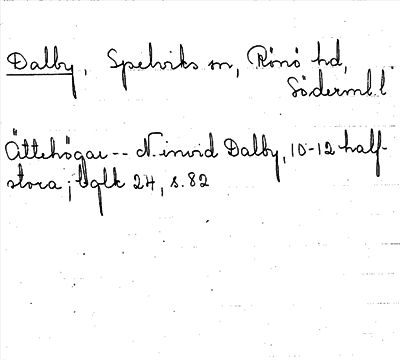 Dalby, Spelviks sn, Rönö hd,
Söderml. l.
Ättehögar -- N. invid Dalby, 10-12 half-
stora; Uglk 24, s. 82